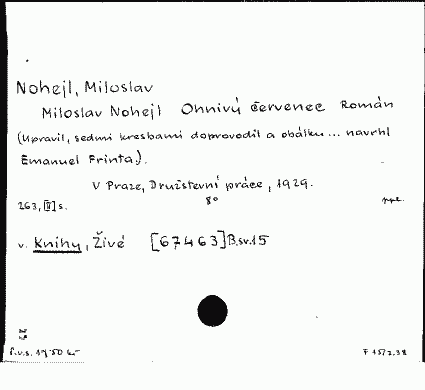 Nohejl, Miloslav
Miloslav Nohejl Ohnivý červenec Román
(Upravil, sedmi kresbami doprovodil a obálku... navrhl
Emanuel Frinta.).
V Praze, Družstevní práce, 1929.
263, [II] s. 8°
v. Knihy, Živé [67463] B.sv.15